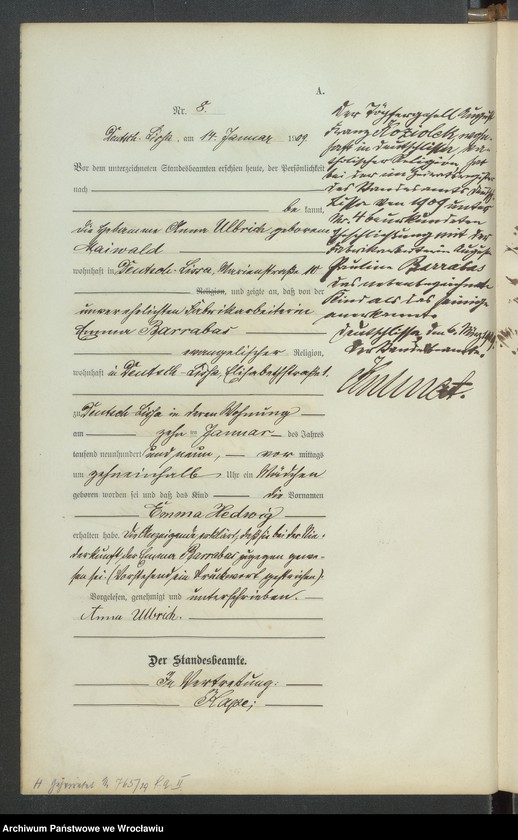 A.
Nr. 8.
Deutsch-Lissa, am 14. Januar 1909.
Vor dem unterzeichneten Standesbeamten erschien heute, der Persönlichkeit
nach
bekannt,
die Hebamme Anna Ulbrich geborene
Maiwald
wohnhaft in Deutsch-Lissa, Marienstraße 10
Religion, und zeigte an, daß von der
unverehelichten Fabrikarbeiterin
Emma Barrabas
evangelischer Religion,
wohnhaft in Deutsch-Lissa, Elisabethstraße 1.
zu Deutsch-Lissa in deren Wohnung
am zehnten Januar des Jahres
tausend neunhundert und neun, vor mittags
um zehneinhalb Uhr ein Mädchen
geboren worden sei und daß das Kind die Vornamen
Emma Hedwig
erhalten habe. Die Anzeigende erklärt, daß sie bei der Nie-
derkunft der Emma Barrabas zugegen gewe-
sen sei. (Vorstehend ein Druckwort gestrichen).
Vorgelesen, genehmigt und unterschrieben.
Anna Ulbrich.
Der Standesbeamte.
In Vertretung:
Der Töpfergesell August
Franz Koziolek wohn-
haft in Deutschlissa, ka-
tholischer Religion hat
bei der im Heiratsregister
des Standesamts Deutsch-
Lissa von 1909 unter
Nr. 4 beurkundeten
Eheschließung mit der
Fabrikarbeiterin
Pauline Barrabas
das nebenbezeichnete
Kind als das seinige
anerkannt.
Deutschlissa, den 6. März 1909
Der Standesbeamte.
II
Archiwum Państwowe we Wrocławiu